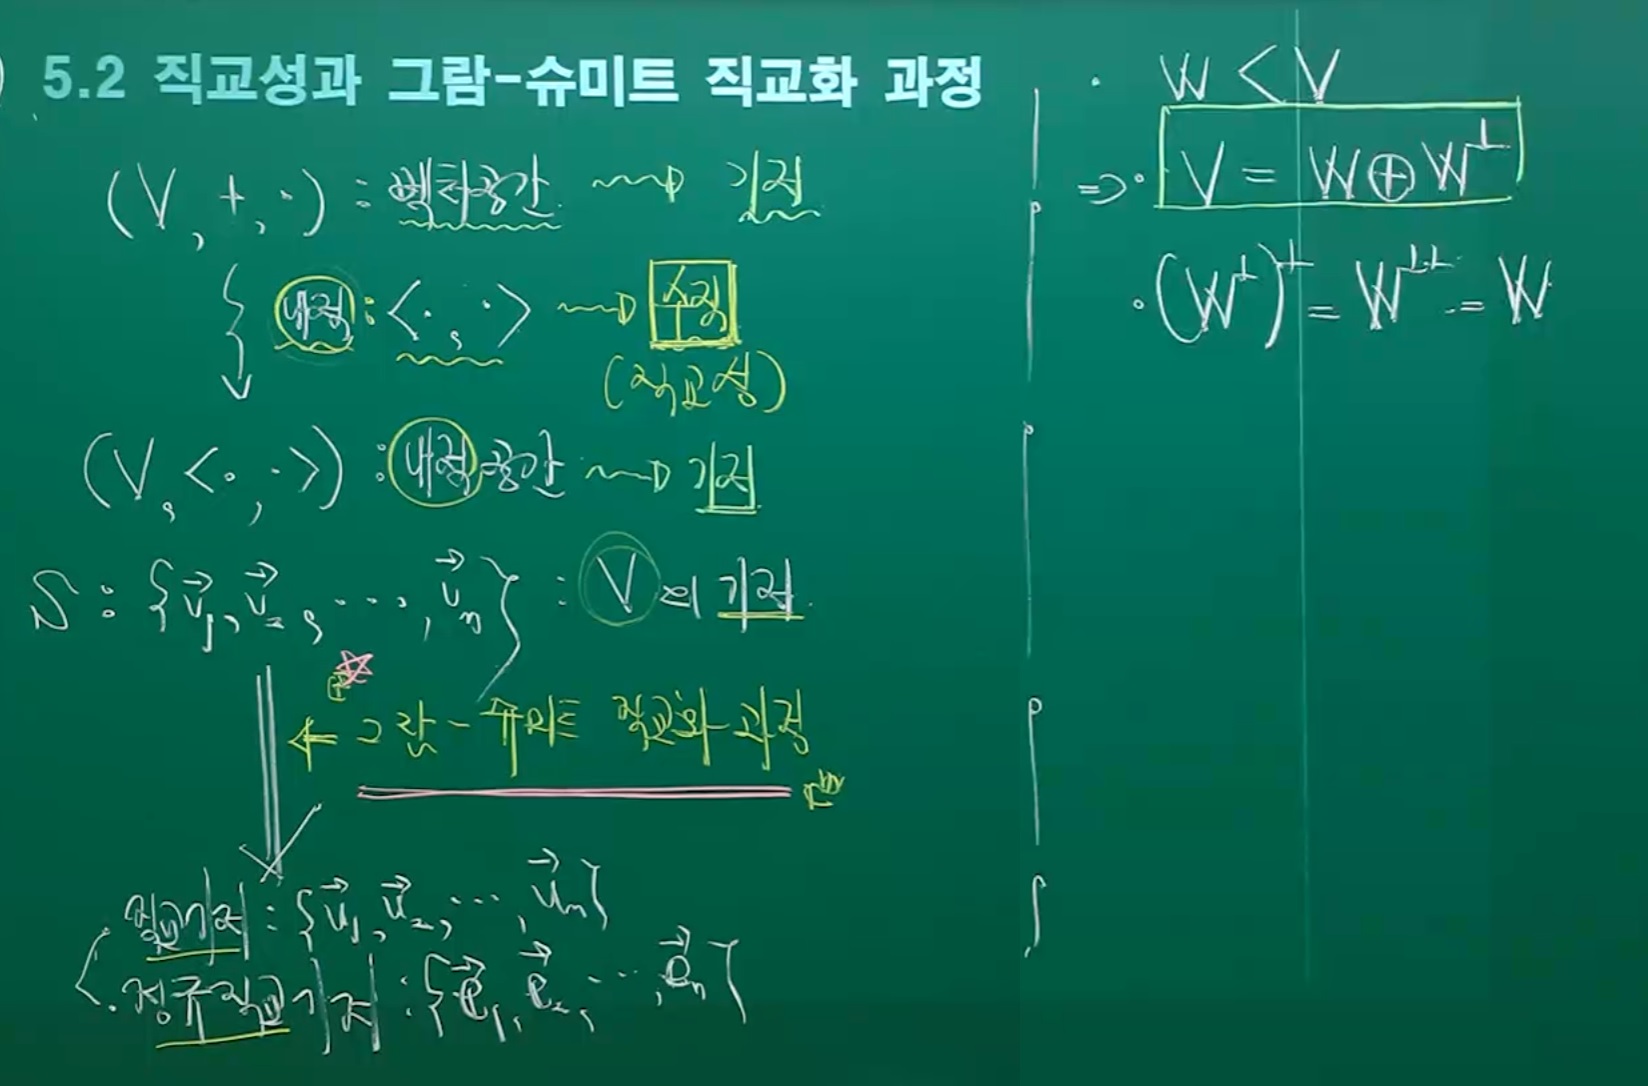 5.2 직교성과 그람-슈미트 직교화 과정
(V, +, ·) : 벡터공간 ⇝ 기저
내적 : < · , · > ⇝ 수직
(직교성)
(V, < · , · >) : 내적공간 ⇝ 기저
S : {v⃗₁, v⃗₂, ···, v⃗ₙ} : V의 기저
← 그람-슈미트 직교화 과정
직교기저 : {u⃗₁, u⃗₂, ···, u⃗ₙ}
정규직교기저 : {e⃗₁, e⃗₂, ···, e⃗ₙ}
· W < V
⇒ · V = W ⊕ W^⊥
· (W^⊥)^⊥ = W^⊥⊥ = W